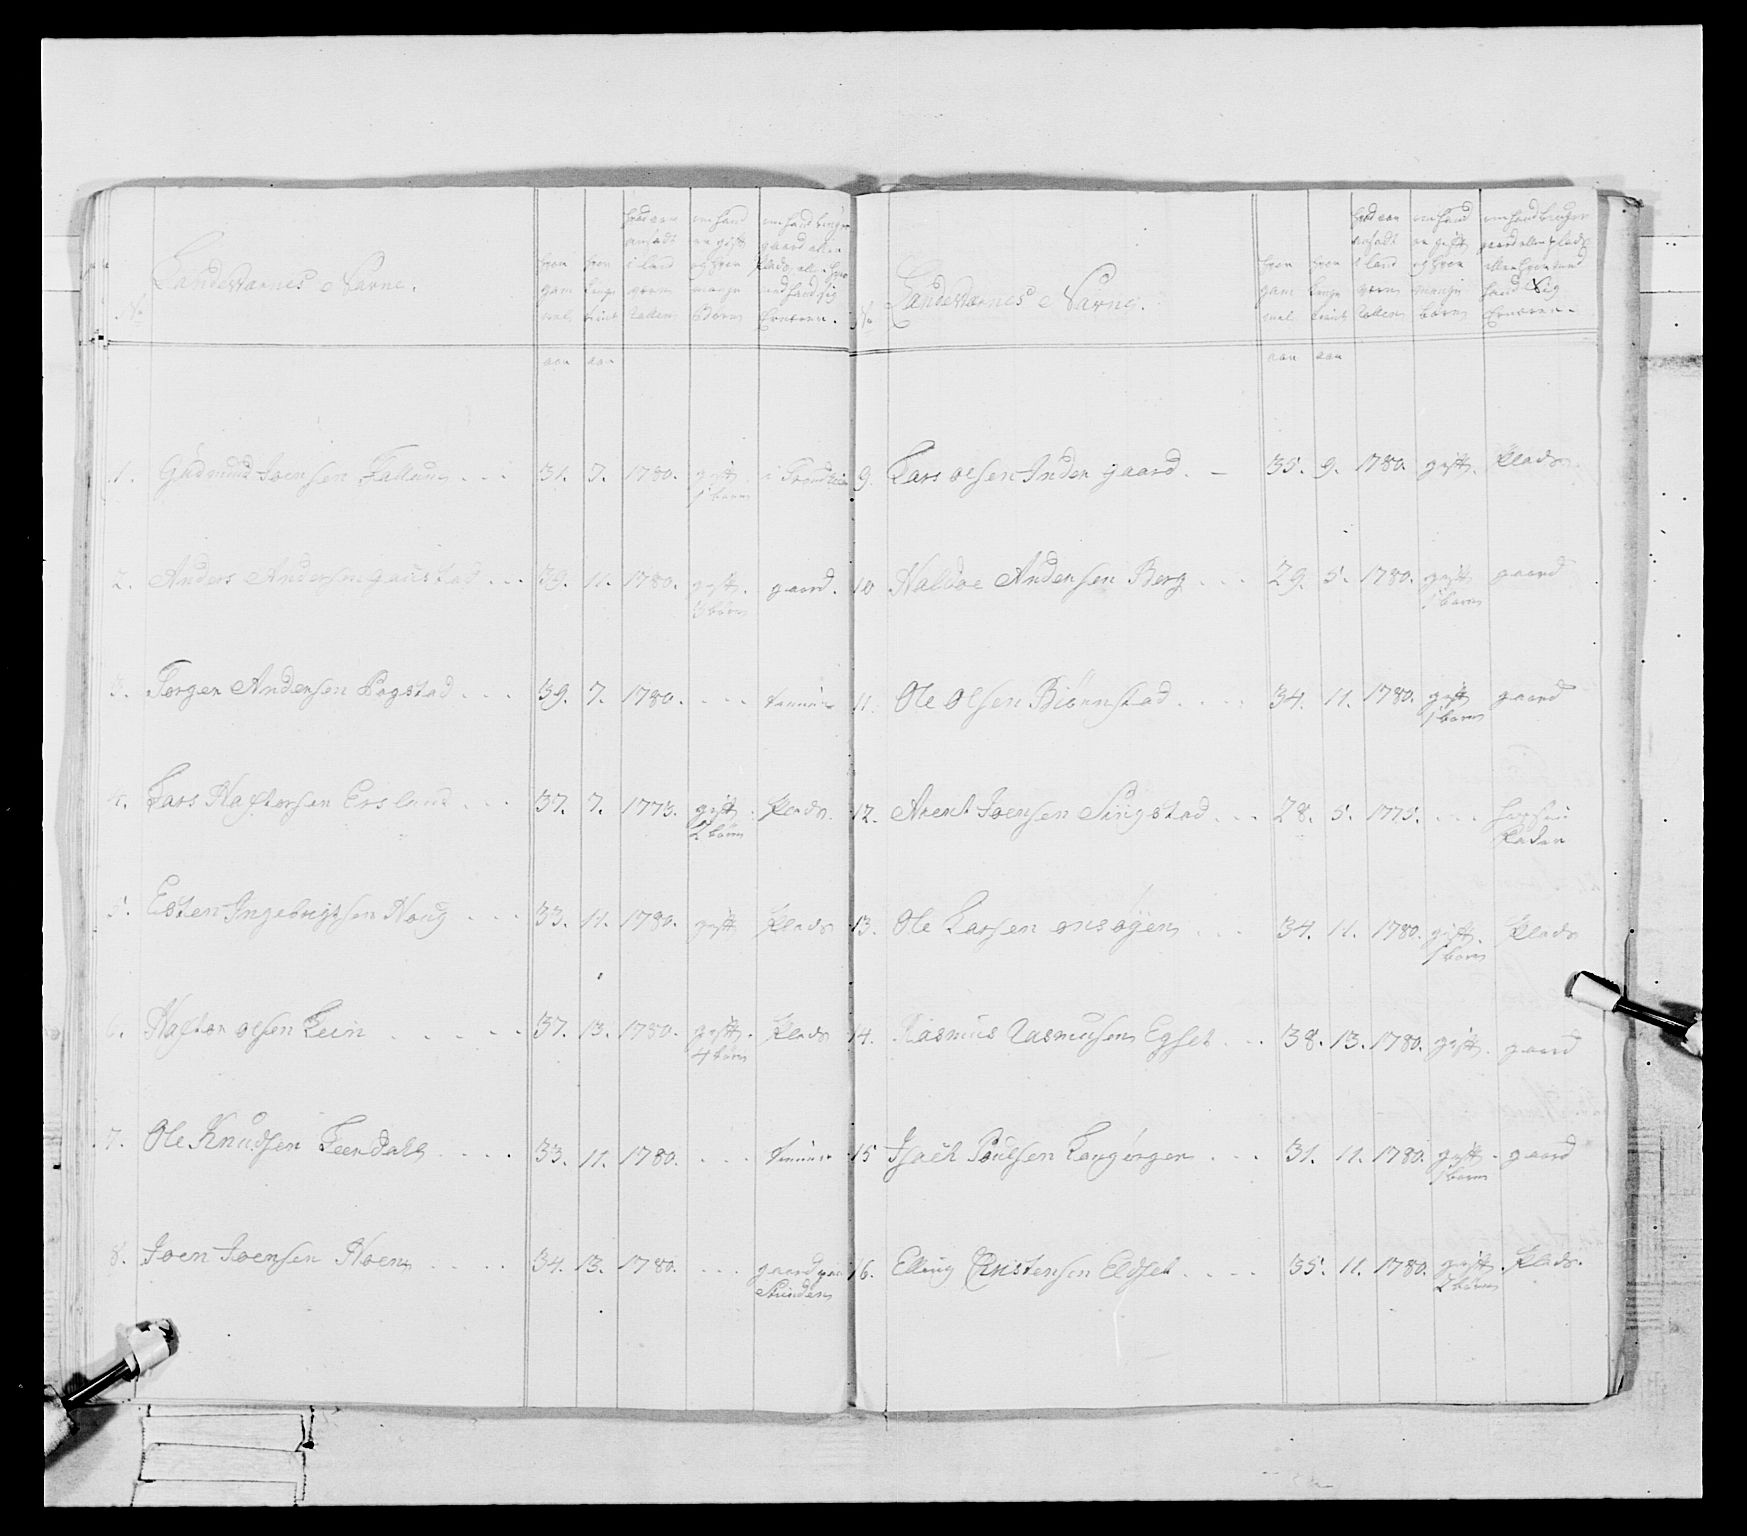 No Landeværnes Navne. hvor gam mel hvor lenge tient hvad aar ansadt i land værn Rullen om hand er gift og hvor mange Børn om hand bruger gaard eller Plads, eller hvor ved hand sig Ernærer.
aar aar
1. Gudmund Joensen 31. 7. 1780. gift. 1 barn i Trondhiem
2. Anders Andersen gaustad 39. 11. 1780. gift. 3 børn gaard.
3. Torger Andersen Bogstad 39. 7. 1780. tienner
4. Lars Haftorsen Ersland 37. 7. 1773. gift. 2 børn Plads.
5. Esten Ingebrigtsen Houg 33. 11. 1780. gift Plads
6. Haftor olsen Lein 37. 13. 1780. gift. 4 børn Plads
7. Ole Knudsen 33. 11. 1780. tienner
8. Joen Joensen Hoem 34. 13. 1780. gaard
No Landeværnes Navne. hvor gam mel hvor lenge tient hvad aar ansadt i land værn Rullen om hand er gift og hvor mange børn om hand bruger gaard eller Plads eller hvor ved hand Sig Ernærer.
aar aar
9. Lars olsen Inder gaard. 35. 9. 1780 gift. Plads.
10 Haldoe Andersen Berg 29. 5. 1780. gift 1 barn gaard
11. Ole olsen Biørnstad 34. 11. 1780. gift 1 barn gaard
12. Arent Joensen 28. 5. 1775. hos sin Fader
13. Ole Larsen onsøyen 34. 11. 1780. gift. 1 barn Plads
14. Rasmus Rasmusen Egset 38. 13. 1780. gift. gaard
15 Isach Poulsen Langørgen 31. 11. 1780. gift. 1 barn gaard
16. Elling Christensen Eldset 35. 11. 1780. gift. 2 børn Plads.